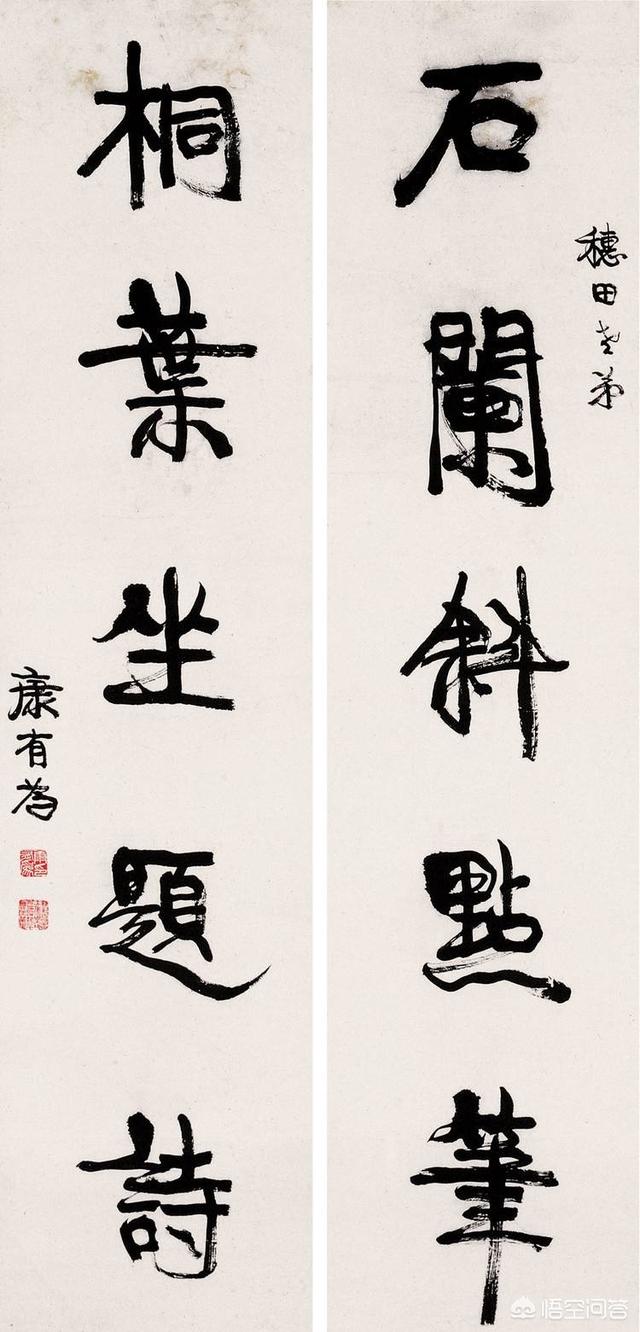 石闌斜點筆
穗田老弟
桐葉坐題詩
康有為
悟空问答